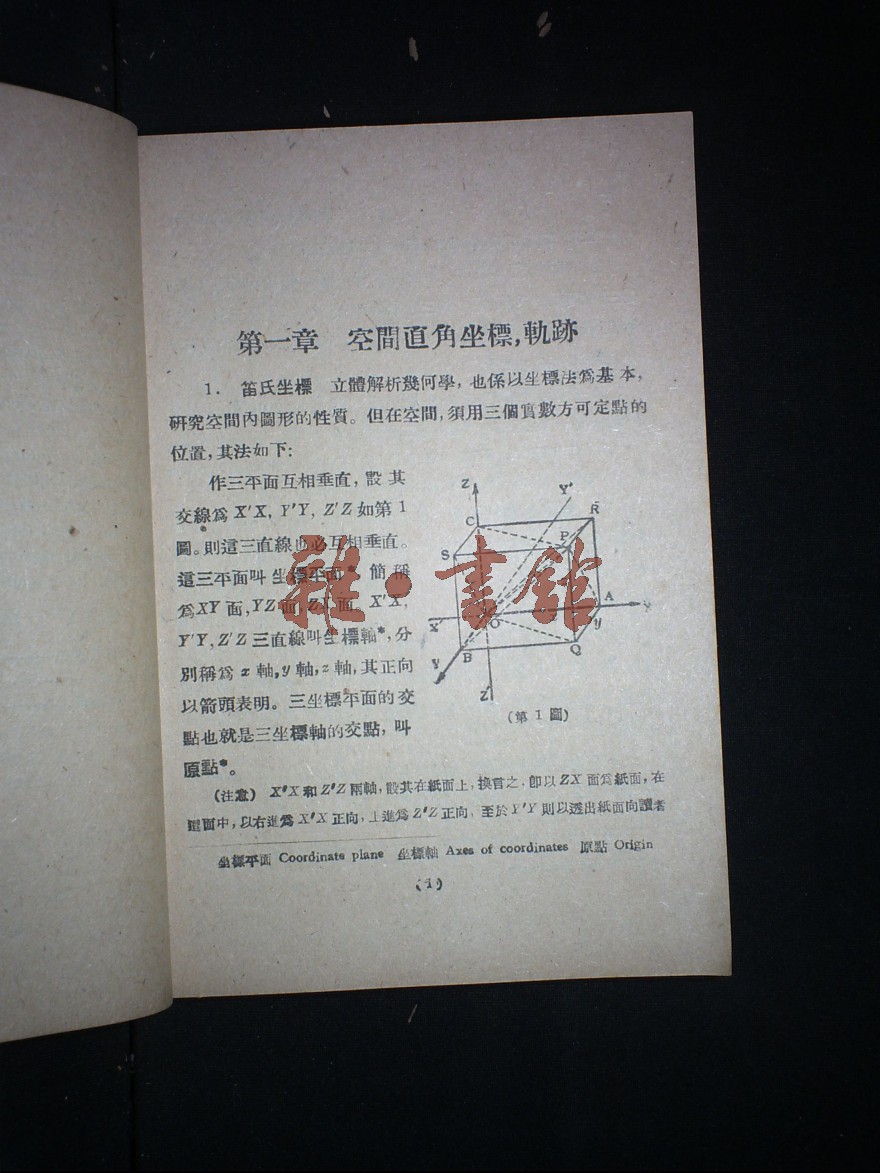 第一章 空間直角坐標,軌跡
1. 笛氏坐標 立體解析幾何學,也係以坐標法爲基本,
研究空間內圖形的性質。但在空間,須用三個實數方可定點的
位置,其法如下:
作三平面互相垂直,設其
交線爲 X'X, Y'Y, Z'Z 如第 1
圖。則這三直線也必互相垂直。
這三平面叫坐標平面* 簡稱
爲XY 面,YZ 面, ZX 面。X'X,
Y'Y, Z'Z 三直線叫坐標軸*,分
別稱爲 x 軸,y 軸,z 軸,其正向
以箭頭表明。三坐標平面的交
點也就是三坐標軸的交點,叫
原點*。
Z
Y'
C
R
S
P
A
X'
O
y
B
Q
Y
Z'
(第 1 圖)
(注意) X'X 和 Z'Z 兩軸,設其在紙面上,換言之,卽以 ZX 面爲紙面,在
這面中,以右進爲 X'X 正向,上進爲 Z'Z 正向,至於 Y'Y 則以透出紙面向讀者
坐標平面 Coordinate plane 坐標軸 Axes of coordinates 原點 Origin
(1)
雜·書館